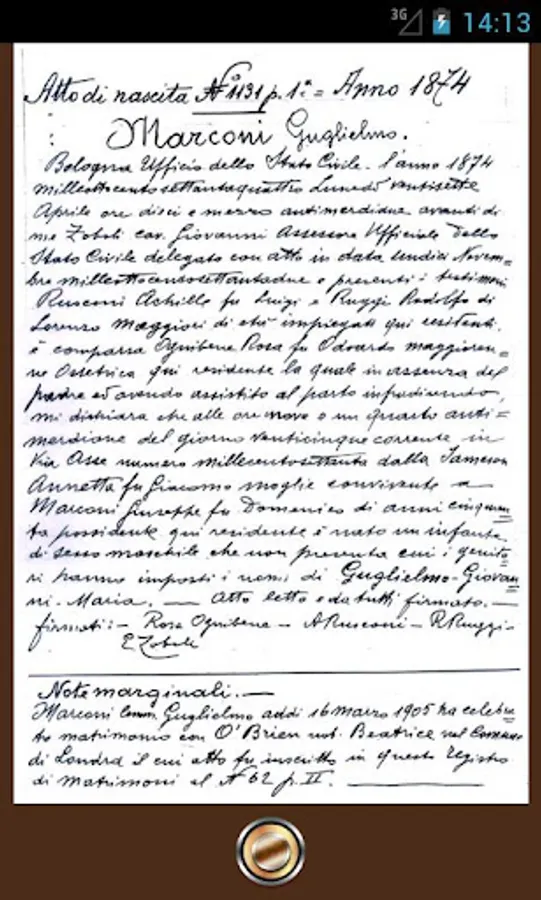 3G 14:13
Atto di nascita N° 1131 p. 1ª = Anno 1874
Marconi Guglielmo.
Bologna Ufficio dello Stato Civile. l'anno 1874
milleottocentosettantaquattro Lunedì ventisette
Aprile ore dieci e mezzo antimerdiane avanti di
me Zoboli cav. Giovanni Assessore Ufficiale dello
Stato Civile delegato con atto in data undici Novem=
bre milleottocensosettantadue e presenti i testimoni
Rusconi Achille fu Luigi e Ruggi Rodolfo di
Lorenzo maggiori di età impiegati qui residenti.
è comparsa Ognibene Rosa fu Odoardo maggioren=
ne Ostetrica qui residente la quale in assenza del
padre ed avendo assistito al parto
mi dichiara che alle ore nove e un quarto anti=
merdiane del giorno venticinque corrente in
Via Asse numero millecentosettanta dalla Jameson
Annetta fu Giacomo moglie convivente a
Marconi Giuseppe fu Domenico di anni cinquan
ta possidente qui residente è nato un infante
di sesso maschile che non presenta cui i genito
ri hanno imposti i nomi di Guglielmo-Giovan
ni-Maria. — Atto letto e da tutti firmato. —
firmati: - Rosa Ognibene - A Rusconi - R. Ruggi -
Zoboli
Note marginali. —
Marconi Guglielmo addì 16 marzo 1905 ha celebra
to matrimonio con O'Brien Beatrice nel Comune
di Londra il cui atto fu inscritto in questo registro
di Matrimoni al N° 62 p. II. —